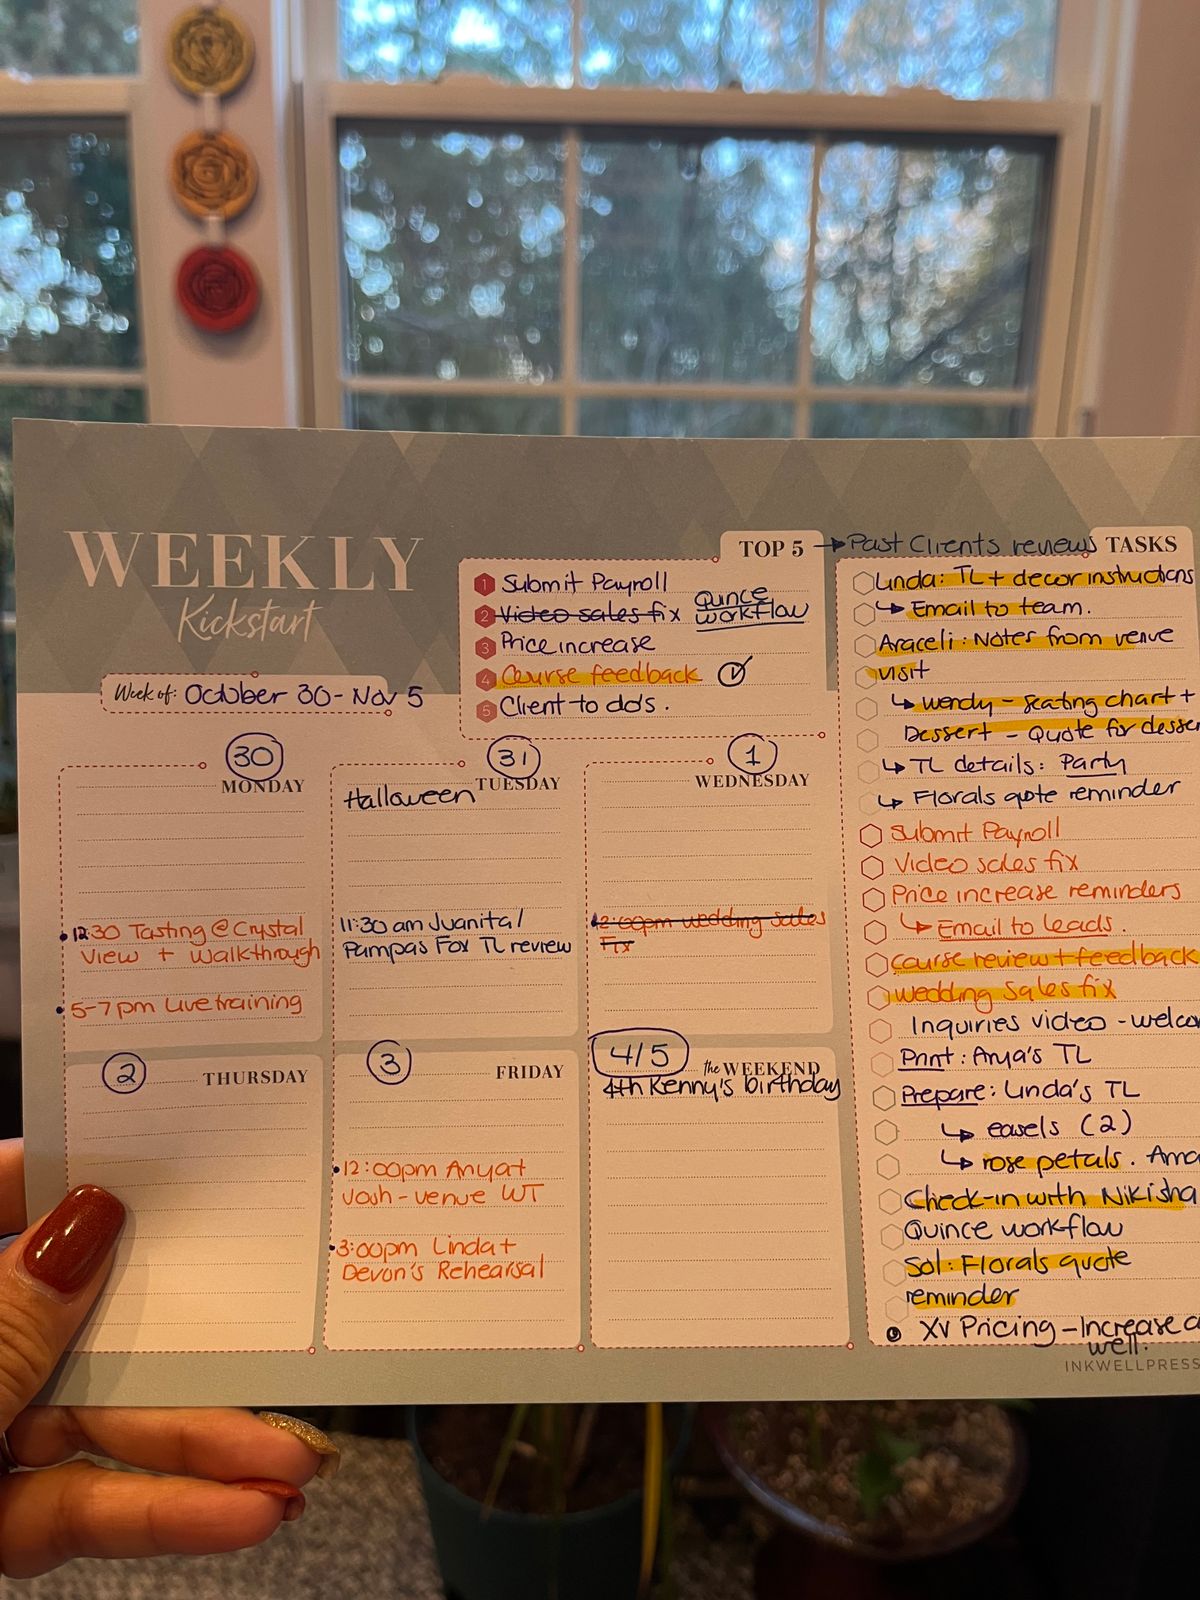 WEEKLY
Kickstart
Week of: October 30 - Nov 5
TOP 5
1 Submit Payroll
2 Video sales fix Quince workflow
3 Price increase
4 Course feedback
5 Client to do's.
30
MONDAY
12:30 Tasting @ Crystal
View + Walkthrough
5-7pm Live training
31
TUESDAY
Halloween
11:30 am Juanita/
Pampas Fox TL review
1
WEDNESDAY
12:00pm wedding sales
Fix
2
THURSDAY
3
FRIDAY
12:00pm Anya+
Josh - venue WT
3:00pm Linda +
Devon's Rehearsal
4/5
the WEEKEND
4th Kenny's birthday
Past Clients reviews
TASKS
Linda: TL + decor instructions
Email to team.
Araceli: Notes from venue
visit
wendy - seating chart +
Dessert - Quote for
TL details: Party
Florals quote reminder
Submit Payroll
Video sales fix
Price increase reminders
Email to leads.
course review + feedback
wedding sales fix
Inquiries video -
Print: Anya's TL
Prepare: Linda's TL
easels (2)
rose petals.
Check-in with Nikisha
Quince workflow
Sol: Florals quote
reminder
XV Pricing - Increase
well.
INKWELLPRESS